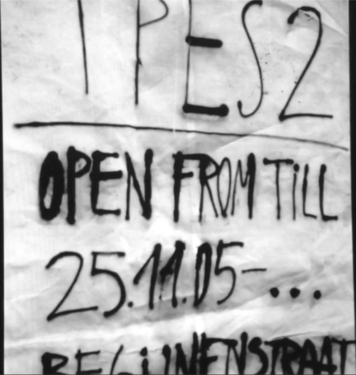 IPES2
OPEN FROM TiLL
25.11.05-...
BEGIJNENSTRAAT